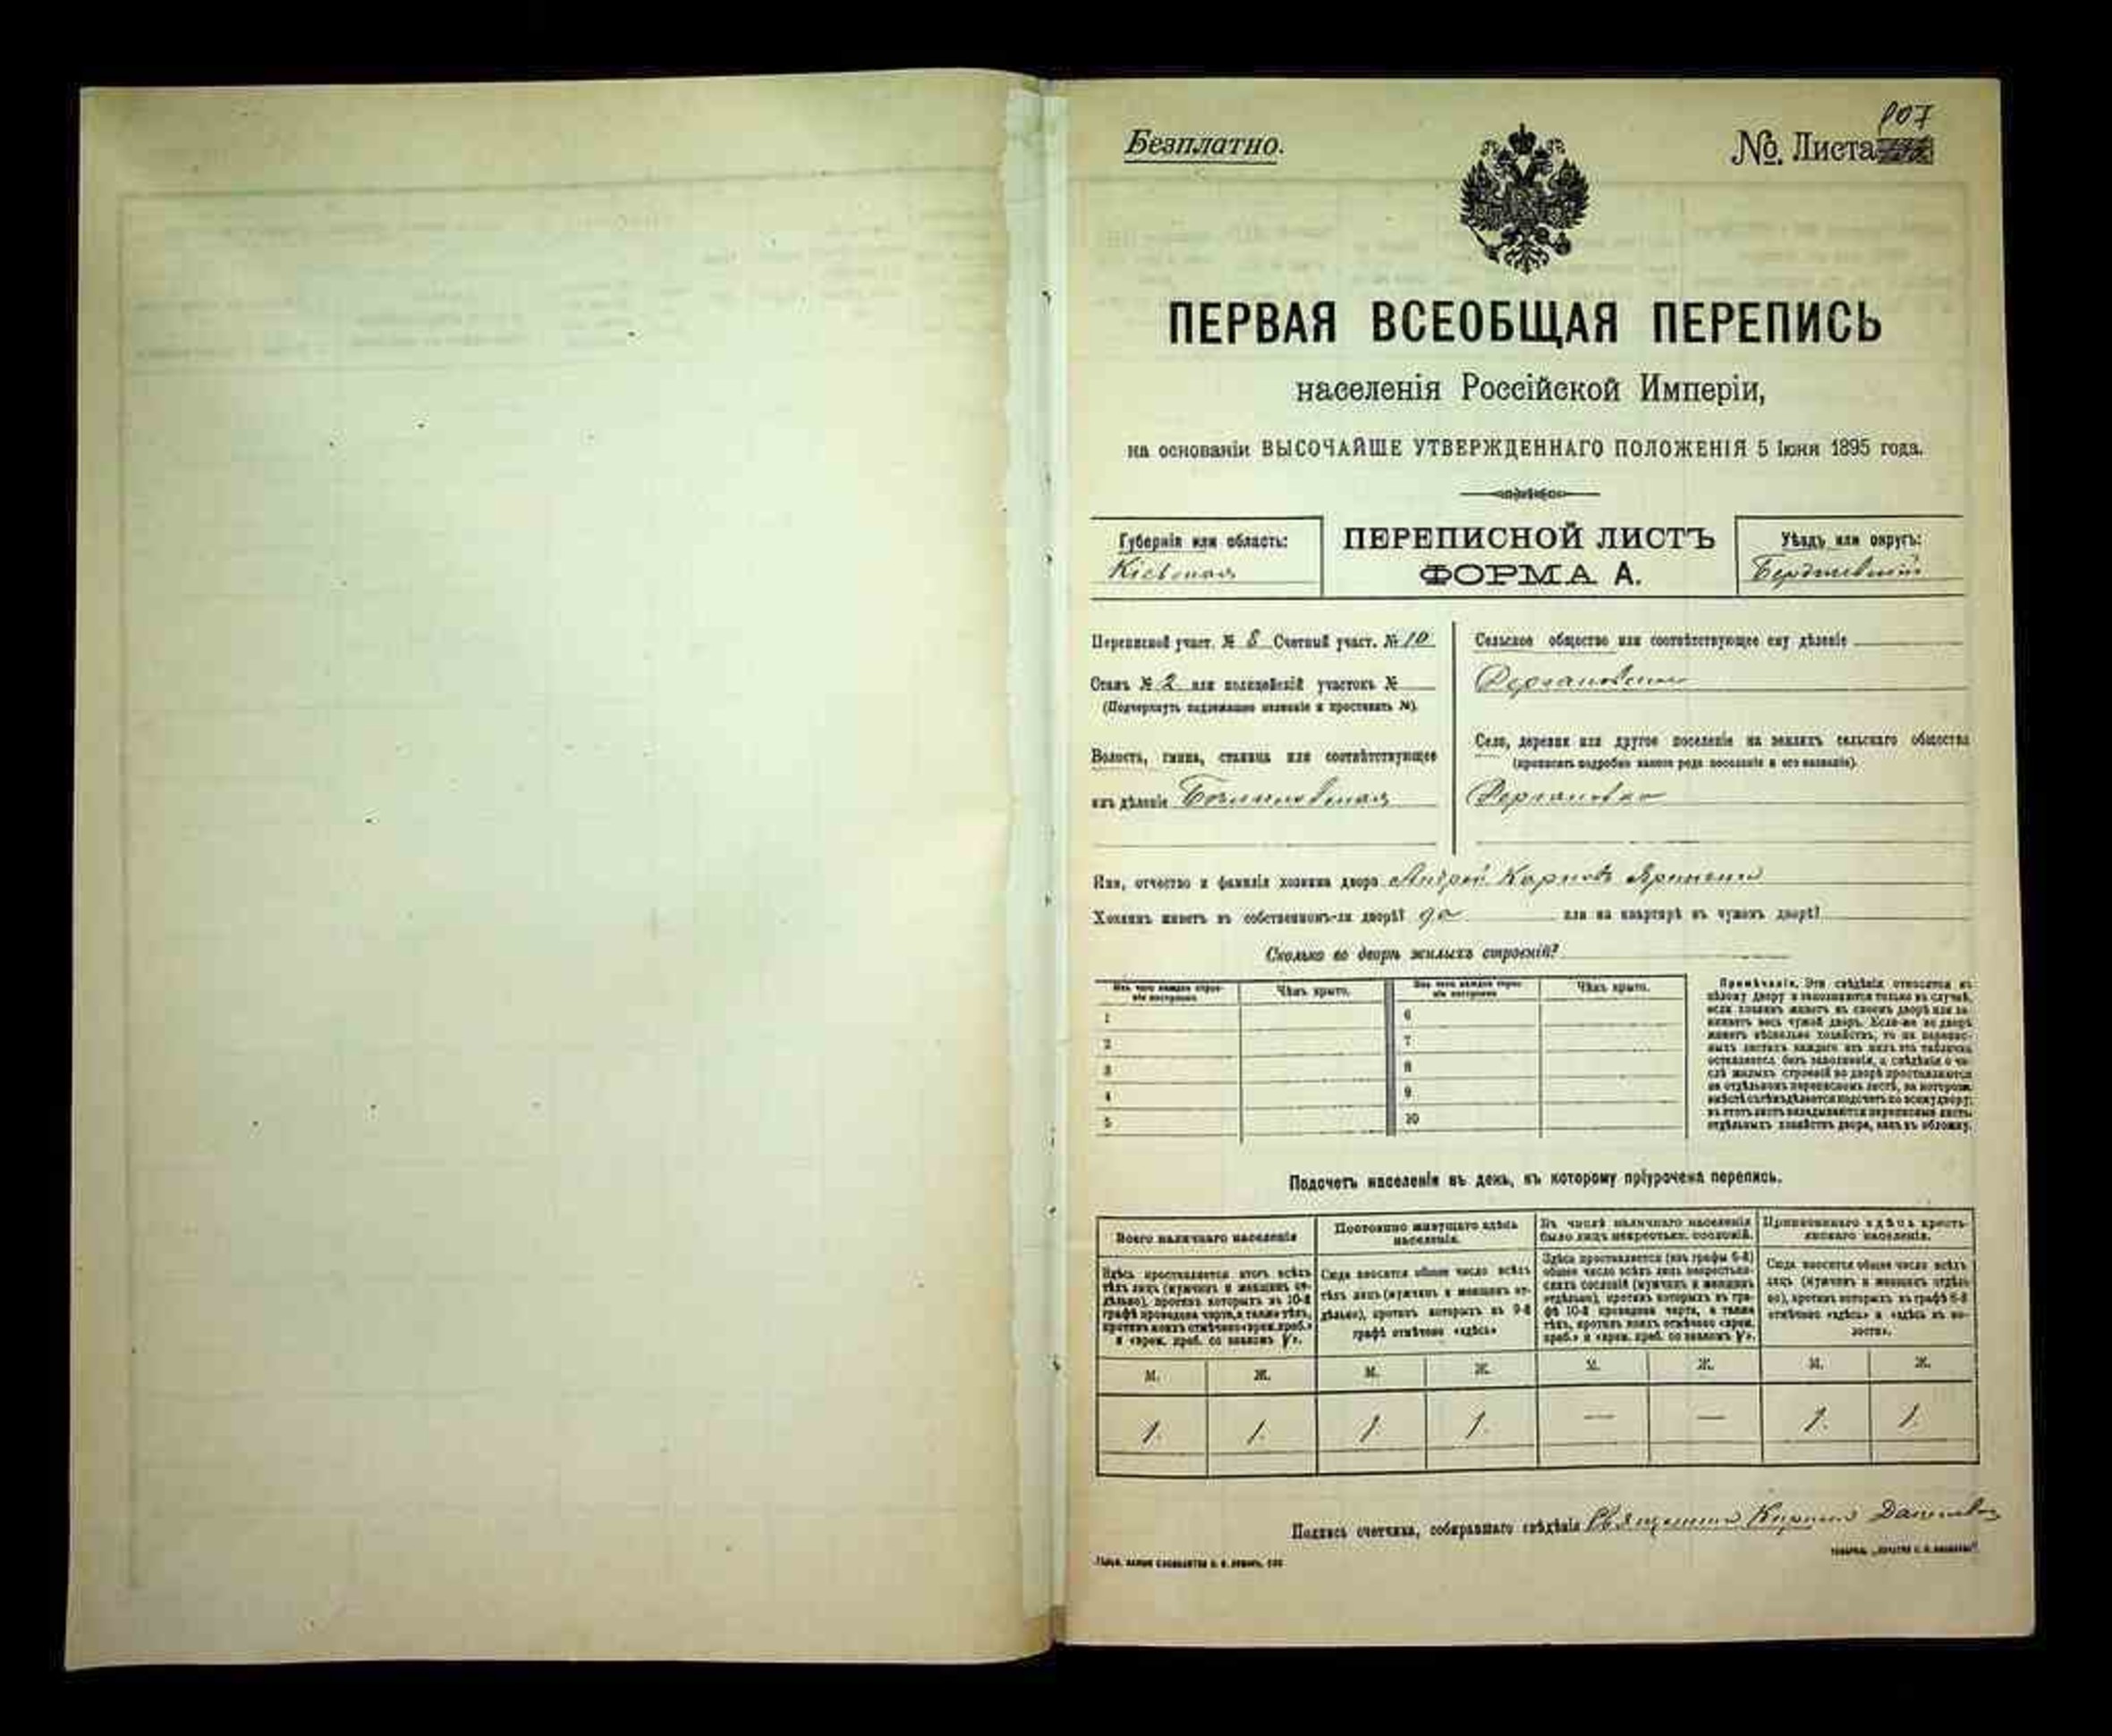 Безплатно.
№. Листа 107
ПЕРВАЯ ВСЕОБЩАЯ ПЕРЕПИСЬ
населенія Россійской Имперіи,
на основаніи ВЫСОЧАЙШЕ УТВЕРЖДЕННАГО ПОЛОЖЕНІЯ 5 Іюня 1895 года.
Губернія или область:
Кіевская
ПЕРЕПИСНОЙ ЛИСТЪ
ФОРМА А.
Уѣздъ или округъ:
Бердичевскій
Переписной участ. № 8 Счетный участ. № 10
Станъ № 2 или полицейскій участокъ №
(Подчеркнуть надлежащее названіе и проставить №).
Волость, гмина, станица или соотвѣтствующее
имъ дѣленіе
Сельское общество или соотвѣтствующее ему дѣленіе
Село, деревня или другое поселеніе на земляхъ сельскаго общества
(прописать подробно какого рода поселеніе и его названіе).
Имя, отчество и фамилія хозяина двора Андрей Карповъ
Хозяинъ живетъ въ собственномъ-ли дворѣ? да или на квартирѣ въ чужомъ дворѣ?
Сколько во дворѣ жилыхъ строеній?
Изъ чего каждое строе-
ніе построено
Чѣмъ крыто.
Изъ чего каждое строе-
ніе построено
Чѣмъ крыто.
1
2
3
4
5
6
7
8
9
10
Примѣчаніе. Эти свѣдѣнія относятся къ
цѣлому двору и заполняются только въ случаѣ,
если хозяинъ живетъ въ своемъ дворѣ или за-
нимаетъ весь чужой дворъ. Если-же во дворѣ
живетъ нѣсколько хозяйствъ, то на перепис-
ныхъ листахъ каждаго изъ нихъ эта табличка
оставляется безъ заполненія, а свѣдѣнія о чи-
слѣ жилыхъ строеній во дворѣ проставляются
на отдѣльномъ переписномъ листѣ, на которомъ
вмѣстѣ съ тѣмъ дѣлается подсчетъ по всему двору;
въ этотъ листъ вкладываются переписные листы
отдѣльныхъ хозяйствъ двора, какъ въ обложку.
Подсчетъ населенія въ день, къ которому пріурочена перепись.
Всего наличнаго населенія
Здѣсь проставляется итогъ всѣхъ
тѣхъ лицъ (мужчинъ и женщинъ от-
дѣльно), противъ которыхъ въ 10-й
графѣ проведена черта, а также тѣхъ,
противъ коихъ отмѣчено «врем. преб.»
и «врем. преб. со знакомъ V».
Постоянно живущаго здѣсь
населенія.
Сюда вносится общее число всѣхъ
тѣхъ лицъ (мужчинъ и женщинъ от-
дѣльно), противъ которыхъ въ 9-й
графѣ отмѣчено «здѣсь»
Въ числѣ наличнаго населенія
было лицъ некрестьян. сословій.
Здѣсь проставляется (изъ графы 6-й)
общее число всѣхъ лицъ некрестьян-
скихъ сословій (мужчинъ и женщинъ
отдѣльно), противъ которыхъ въ гра-
фѣ 10-й проведена черта, а также
тѣхъ, противъ коихъ отмѣчено «врем.
преб.» и «врем. преб. со знакомъ V».
Приписаннаго здѣсь кресть-
янскаго населенія.
Сюда вносится общее число всѣхъ
лицъ (мужчинъ и женщинъ отдѣль-
но), противъ которыхъ въ графѣ 8-й
отмѣчено «здѣсь» и «здѣсь въ во-
лости».
М. Ж. М. Ж. М. Ж. М. Ж.
1. 1. 1. 1. — — 1. 1.
Подпись счетчика, собиравшаго свѣдѣнія Священникъ Кириллъ